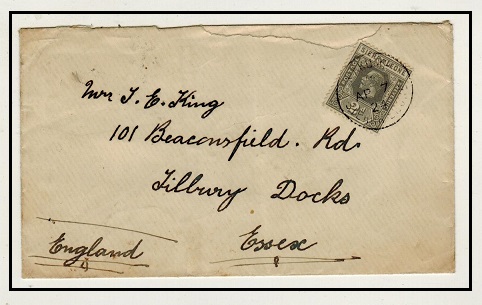 SIERRA LEONE
Mrs T. E. King
101 Beaconsfield. Rd.
Tilbury Docks
Essex
England